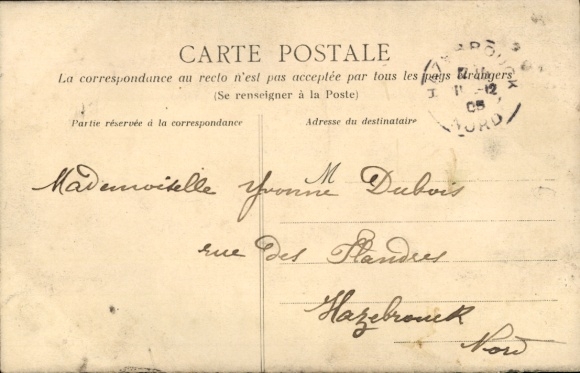 CARTE POSTALE
La correspondance au recto n'est pas acceptée par tous les pays étrangers
(Se renseigner à la Poste)
Partie réservée à la correspondance
Adresse du destinataire
HAZEBROUCK
12
05
NORD
M
Mademoiselle Yvonne Dubois
rue des Flandres
Hazebrouck
Nord